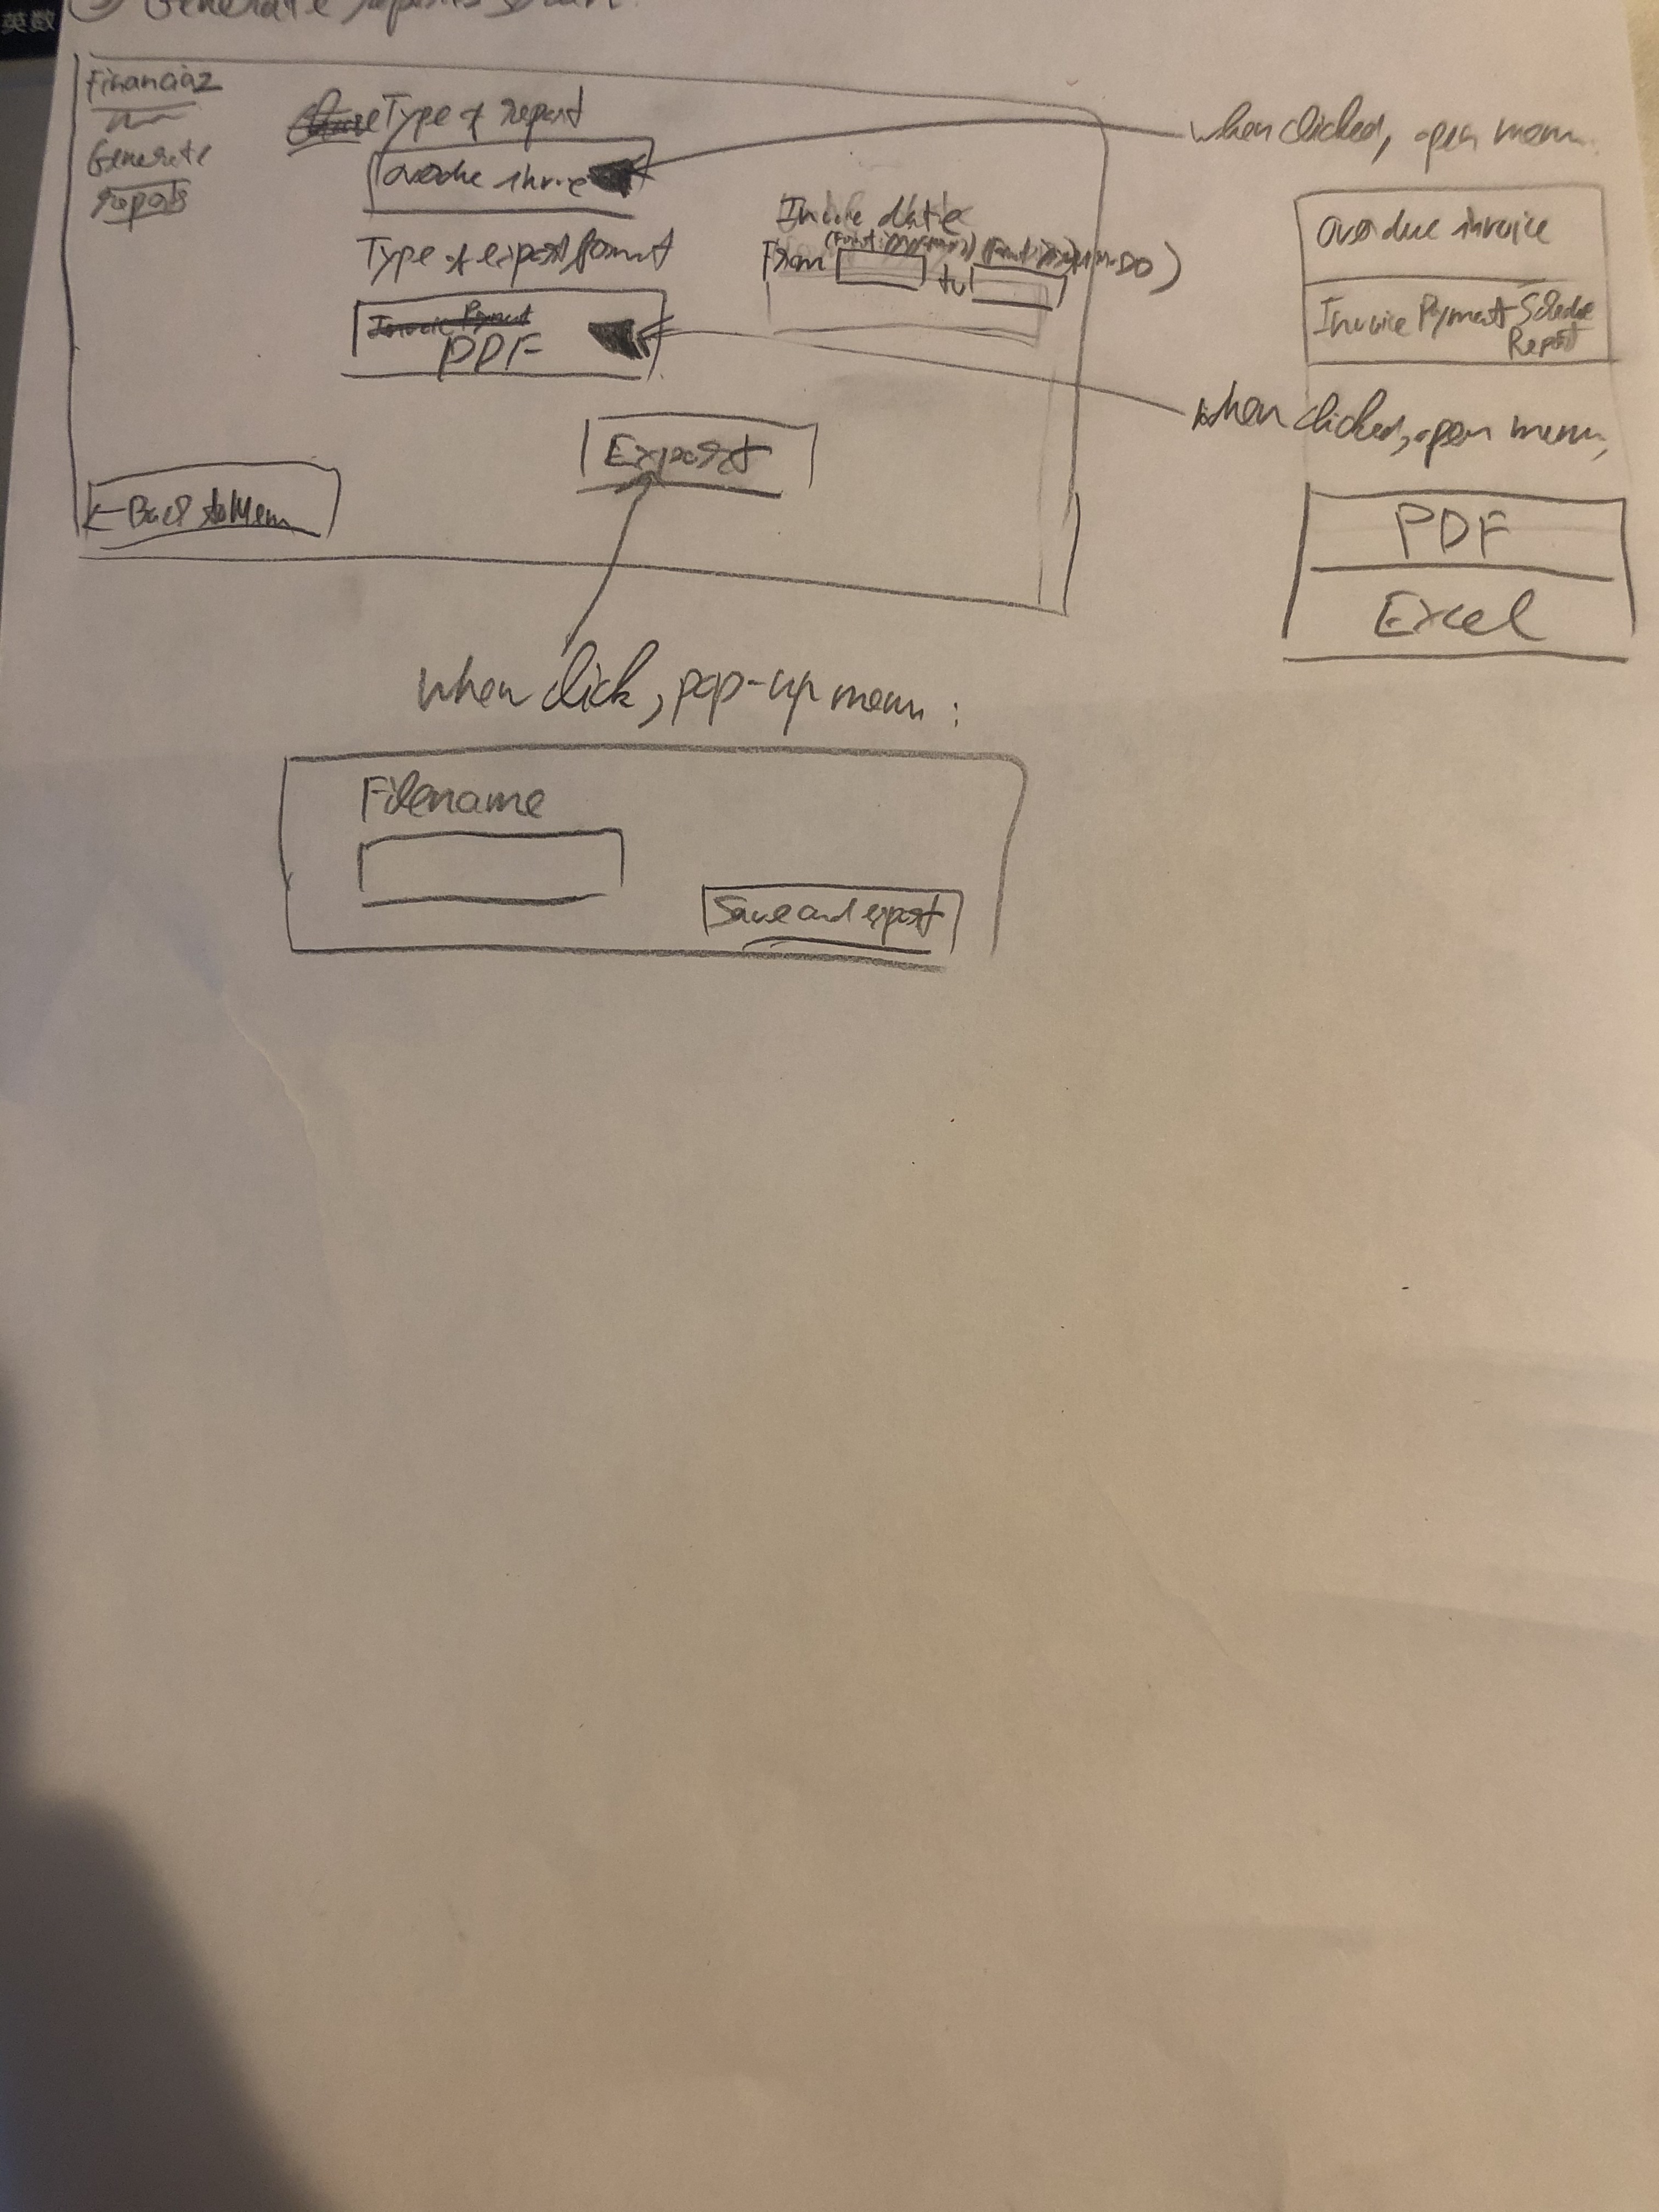 Generate reports screen
Financial
Generate
reports
Type of report
overdue invoice
Type of export format
Invoice Payment
PDF
Invoice date
From
to
Export
← Back to Menu
when clicked, open menu
overdue invoice
Invoice Payment Schedule
Report
when clicked, open menu,
PDF
Excel
when click, pop-up menu:
Filename
Save and export